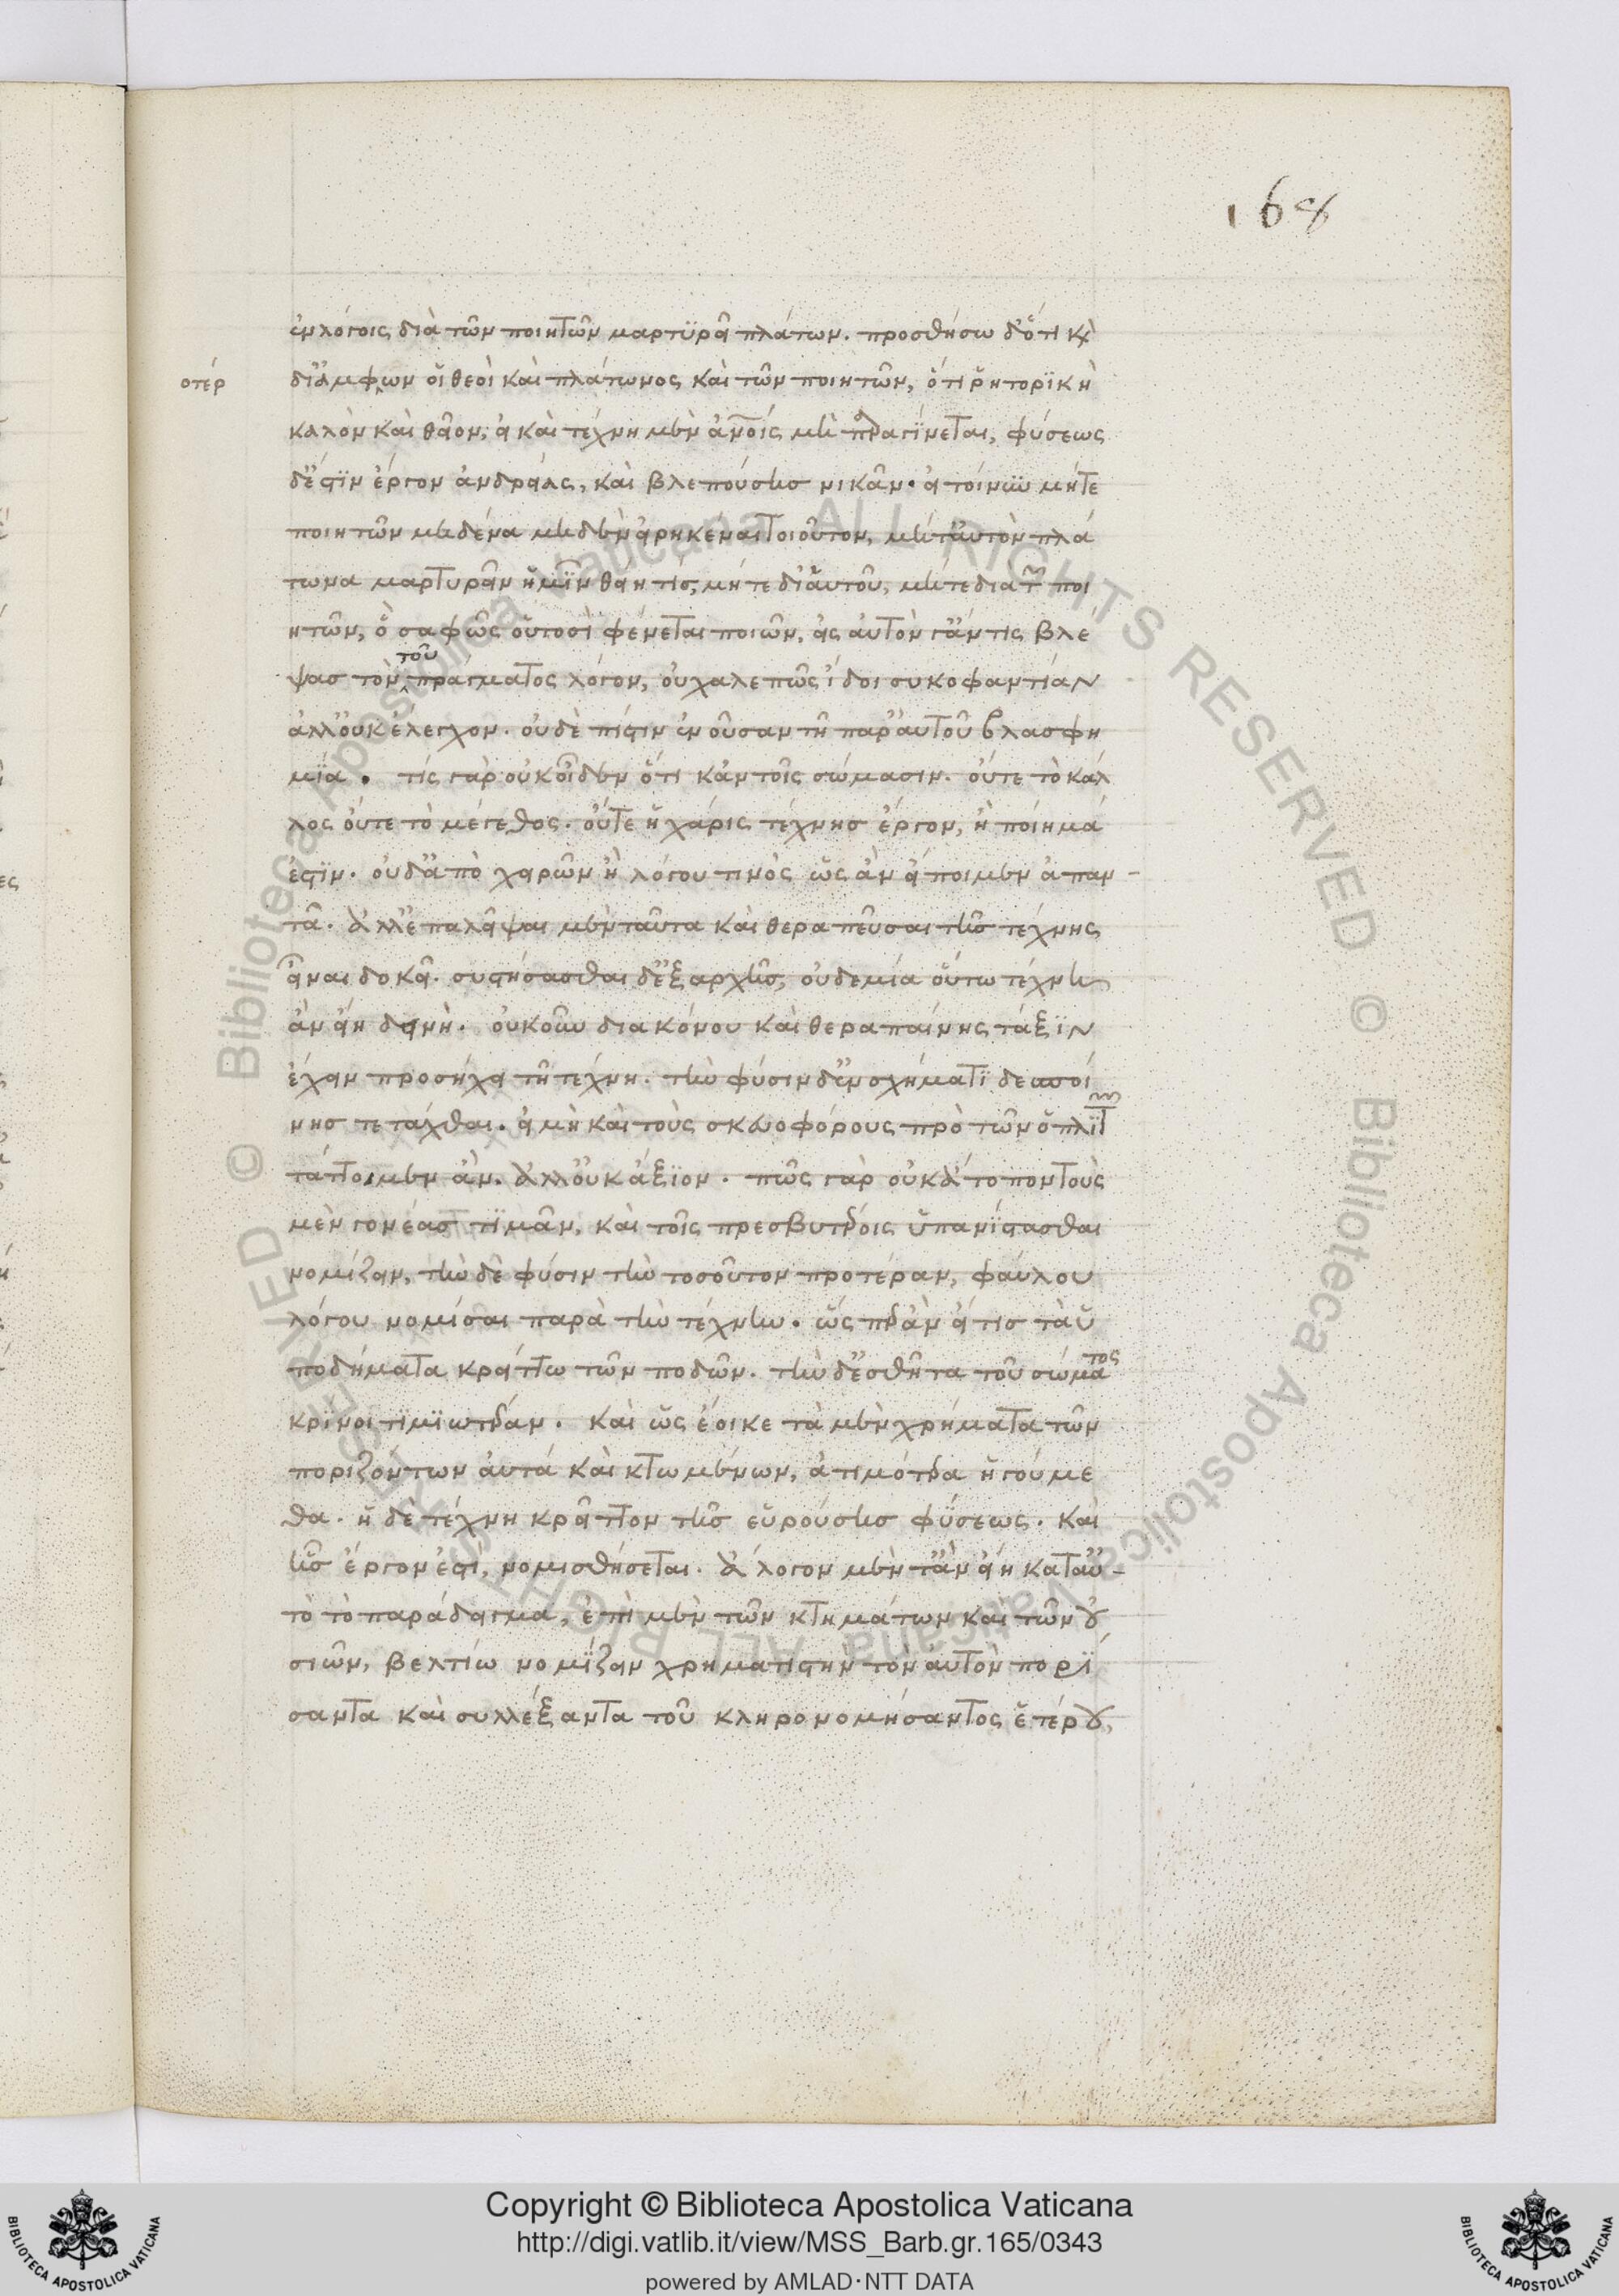 168
ἐν λόγοις διὰ τῶν ποιητῶν μαρτϋρεῖ πλάτων. προσθήσω δ' ὅτι κὶ
οτέρ
δι' ἀμφων οἱ θεοὶ καὶ πλάτωνος καὶ τῶν ποιητῶν, ὅτι ῥητορϊκὴ
καλὸν καὶ θεῖον, εἰ καὶ τέχνη μὲν ἀνοις μὴ παραγίνεται, φύσεως
δ' ἐστϊν ἔργον ἀνδρείας, καὶ βλεπούσης νικᾶν. εἰ τοίνυν μήτε
ποιητῶν μηδένα μηδὲν εἰρηκέναι τοιοῦτον, μήτ' αὐτὸν πλά
τωνα μαρτυρεῖν ἡμῖν θείη τίς, μήτε δι' αὑτοῦ, μήτε δια τῶν ποι
ητῶν, ὃ σαφῶς οὑτοσὶ φένεται ποιῶν, εἰς αὐτὸν γ' ἄν τις βλέ
ψας τὸν τοῦ πράγματος λόγον, οὐ χαλεπῶς ἴδοι συκοφαντίαν
ἀλλ' οὐκ ἔλεγχον. οὐδὲ πίστιν ἐνοῦσαν τῇ παρ' αὐτοῦ βλασφη
μΐα. τίς γὰρ οὐκ οἶδεν ὅτι κἀν τοῖς σώμασιν. οὔτε τὸ κάλ
λος οὔτε τὸ μέγεθος. οὔτε ἡ χάρις τέχνης ἔργον, ἢ ποίημά
ἐστϊν. οὐδ' ἀπὸ χειρῶν ἢ λόγου τινὸς ὡς ἂν εἴποιμεν ἀπαν-
τᾶ. ἀλλ' ἐπαλεῖψαι μὲν ταῦτα καὶ θεραπεῦσαι τῆς τέχνης
εἶναι δοκεῖ. συστήσασθαι δ' ἐξαρχῆς, οὐδεμία οὕτω τέχνη
ἂν εἴη δεινὴ. οὐκοῦν διακόνου καὶ θεραπαίνης τάξϊν
ἔχειν προσήχει τῇ τέχνη. τὴν φύσιν δ' ἐν σχήματϊ δεσποί
νης τετάχθαι. εἰ μὴ καὶ τοὺς σκευοφόρους πρὸ τῶν ὁπλϊτῶν
τάττοιμεν ἄν. ἀλλ' οὐκ ἄξϊον. πῶς γὰρ οὐκ ἄτοπον τοὺς
μὲν γονέας τϊμᾶν, καὶ τοῖς πρεσβυτέροις ὑπανΐστασθαι
νομίζειν, τὴν δὲ φύσιν τὴν τοσοῦτον προτέραν, φαύλου
λόγου νομίσαι παρὰ τὴν τέχνην. ὥσπερ ἂν εἴ τις τὰ ὑ
ποδήματα κρείττω τῶν ποδῶν. τὴν δ' ἐσθῆτα τοῦ σώματος
κρϊνοι τϊμϊωτέραν. καὶ ὡς ἔοικε τὰ μὲν χρήματα τῶν
ποριζόντων αὐτά καὶ κτωμένων, ἀτιμότερα ἡγούμε
θα. ἡ δὲ τέχνη κρεῖττον τῆς εὑρούσης φΰσεως. καὶ
ἧς ἔργον ἐστί, νομισθήσεται. ἄλογον μὲν τ' ἂν εἴη κατ' αὐ-
τὸ τὸ παράδειγμα, ἐπὶ μὲν τῶν κτημάτων και τῶν οὐ
σιῶν, βελτίω νομΐζειν χρηματιστὴν τὸν αὐτὸν πορΐ
σαντα καὶ συλλέξαντα τοῦ κληρονομήσαντος ἑτέρου,
Copyright © Biblioteca Apostolica Vaticana
http://digi.vatlib.it/view/MSS_Barb.gr.165/0343
powered by AMLAD·NTT DATA